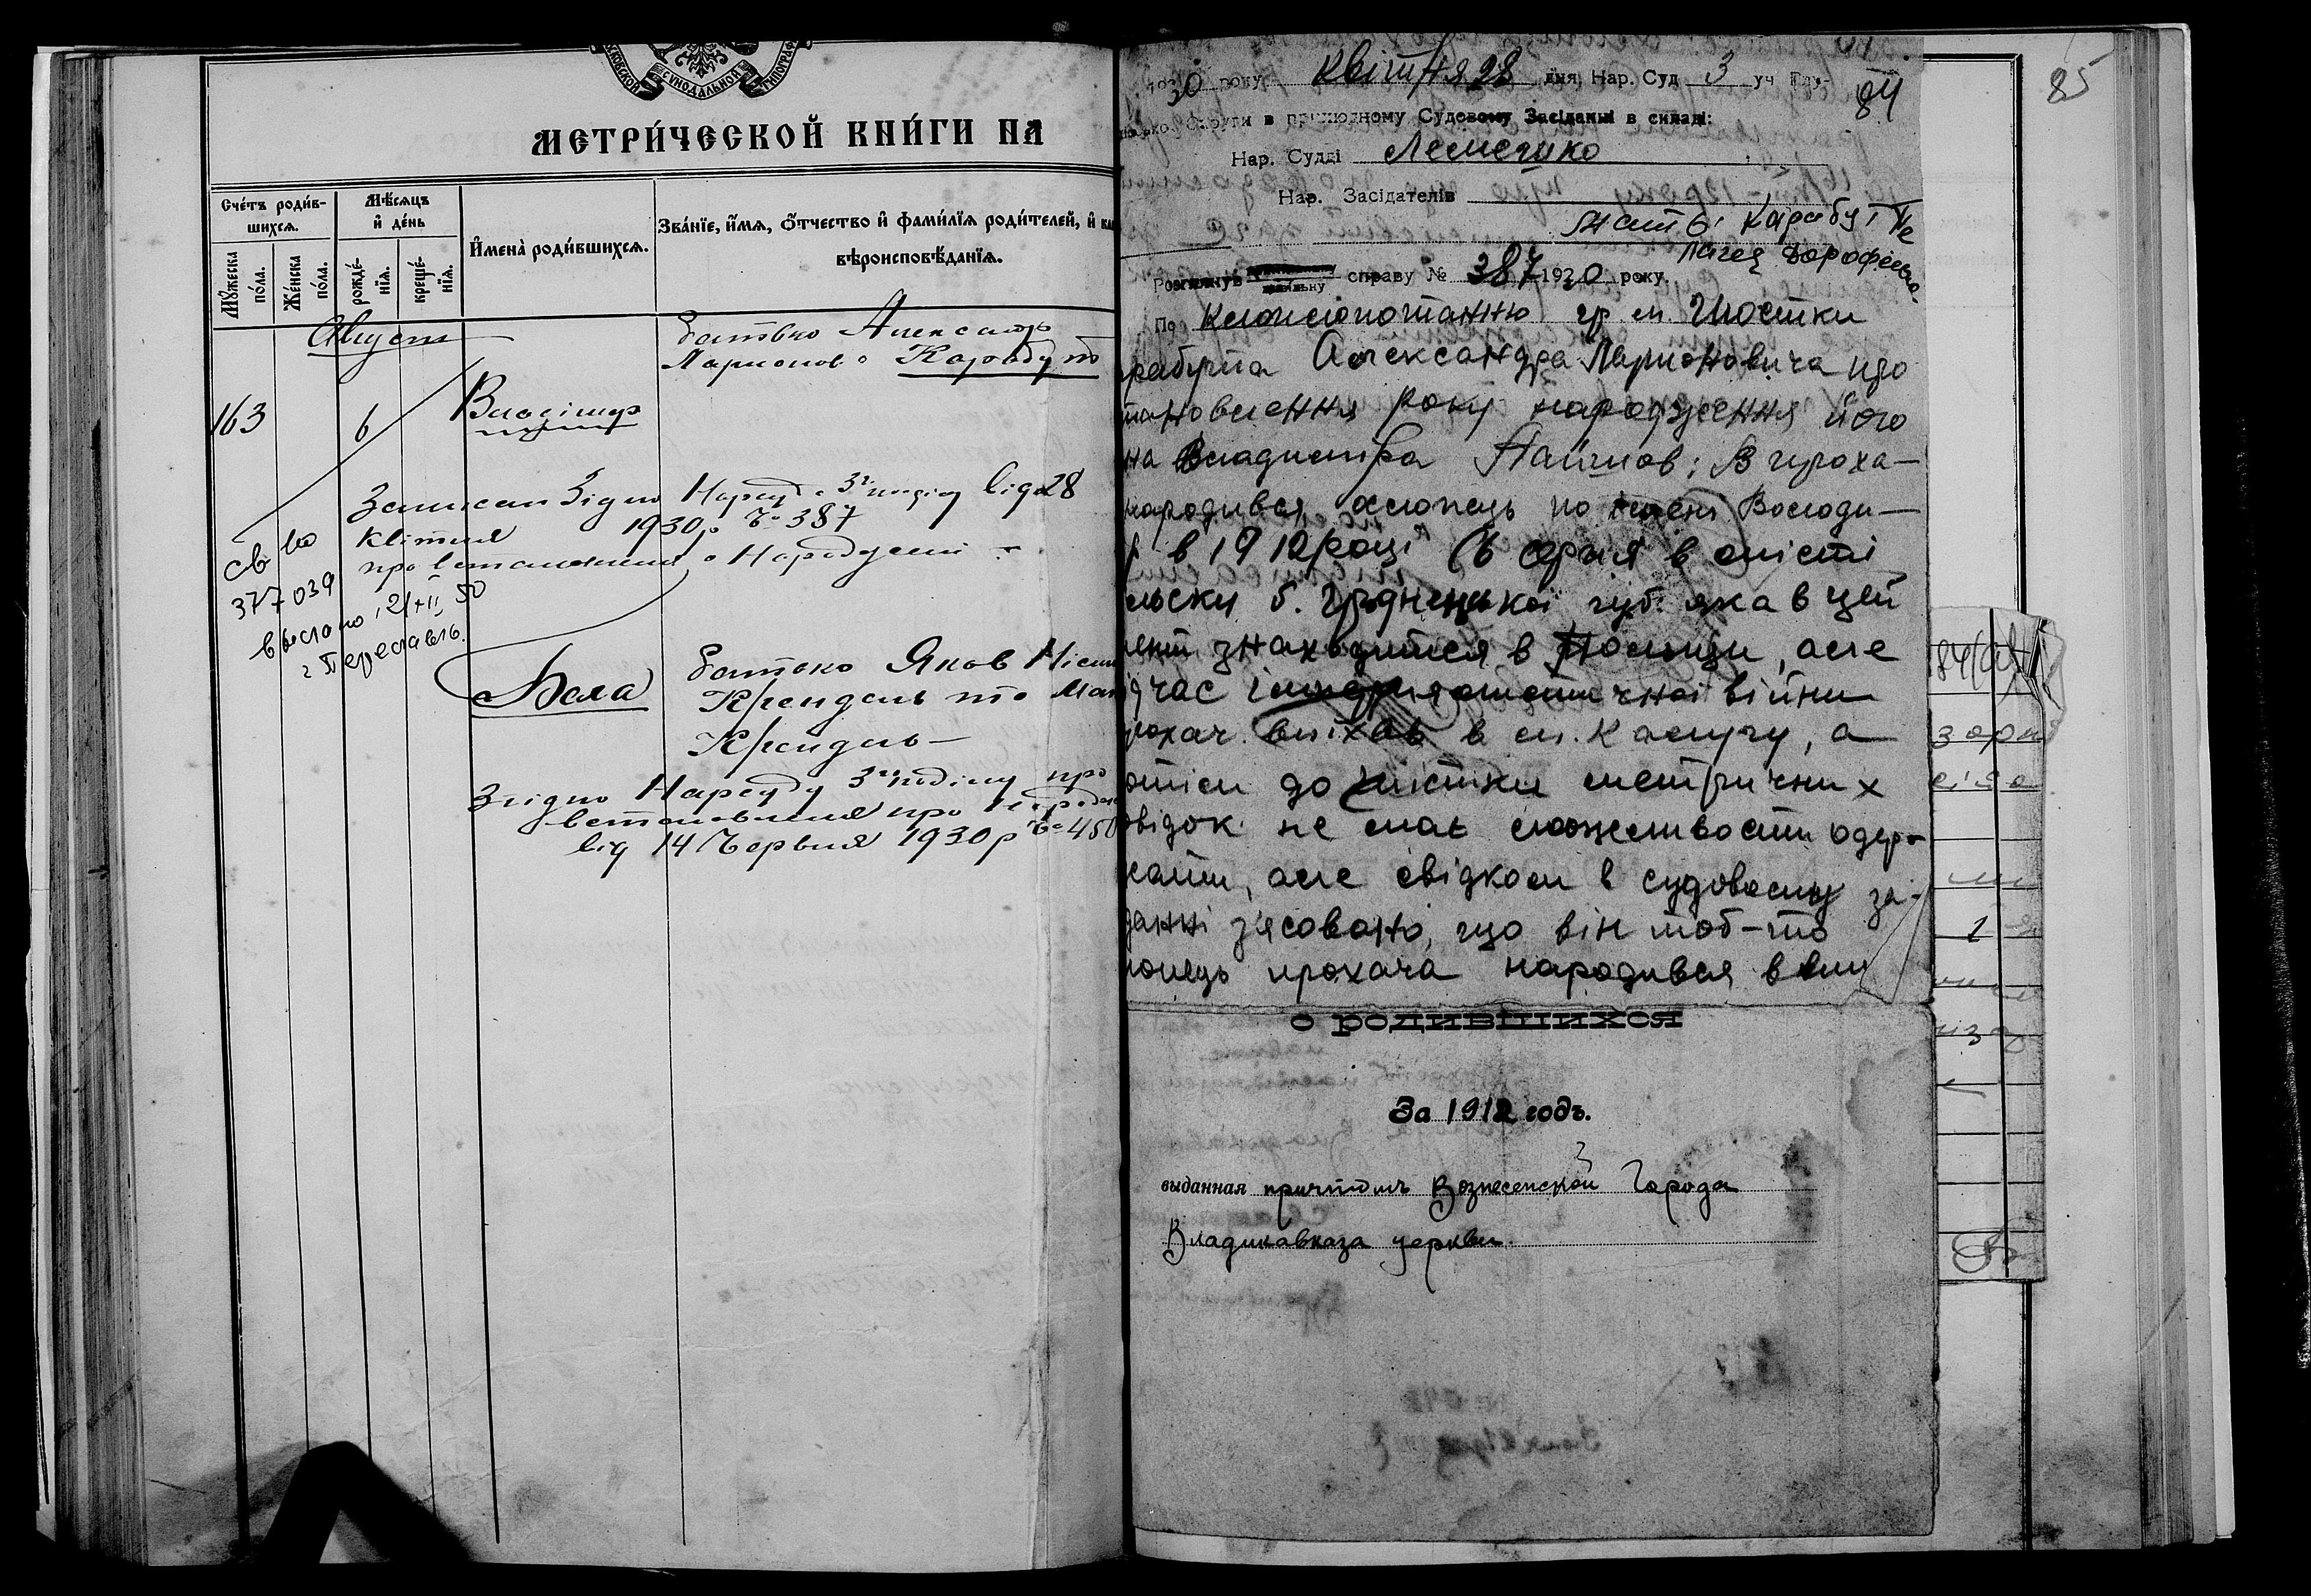 МОСКОВСКОЙ СѴНОДАЛЬНОЙ ТИПОГРАФ
МЕТРИ́ЧЕСКОЙ КНИ́ГИ НА
Сче́тъ роди́в-
шихсѧ.
Мꙋ́жеска
по́ла.
Же́нска
по́ла.
Мѣ́сѧцъ
и҆ де́нь
рожде́-
нїѧ.
креще́-
нїѧ.
И҆мена̀ роди́вшихсѧ.
Зва́нїе, и҆́мѧ, ѻ҆́тчество и҆ фами́лїѧ роди́телей, и҆ ка
вѣроисповѣ́данїѧ.
Август
батько Александр
Ларионов. Карабут
163
6
Владимир
Записан згідно Нарсуду 3го від 28
квітня 1930р № 387
про встановлення о Народженні
св во
377039
выслано 21/II 50
г Переславль.
Бела
батько Яков
Крендель та Мат
Крендель
Згідно Нарсуду 3го про
встановлення про Народж
від 14 Червня 1930р № 450
85
84
1930 року квітня 28 дня, Нар. Суд 3 уч
Округи в прилюдному Судовому Засіданні в складі:
Нар. Судді
Нар. Засідателів
мати Карабут Пе
лагея Дорофеева-
Розглянув справу № 387 1930 року.
По клопотанню гр м. Шостки
рабута Александра Ларионовича про
тановлення року народження його
на Владимира Найшов: В проха-
народився хлопець по імені Володи-
р в 1912 році (6 серпня в місті
льську б. Гродненської губ. яка в цей
мент знаходится в Польщи, але
ід час імперіалистичної війни
рохач виїхав в м. Калугу, а
отім до Шостки метричних
овідок не має можливости одер-
жати, але свідком в судовому за-
данні з'ясовано, що він тоб-то
лопець прохача народився в
о родившихся
За 1912 годъ.
выданная причтомъ Вознесенской Города
Владикавказа церкви.